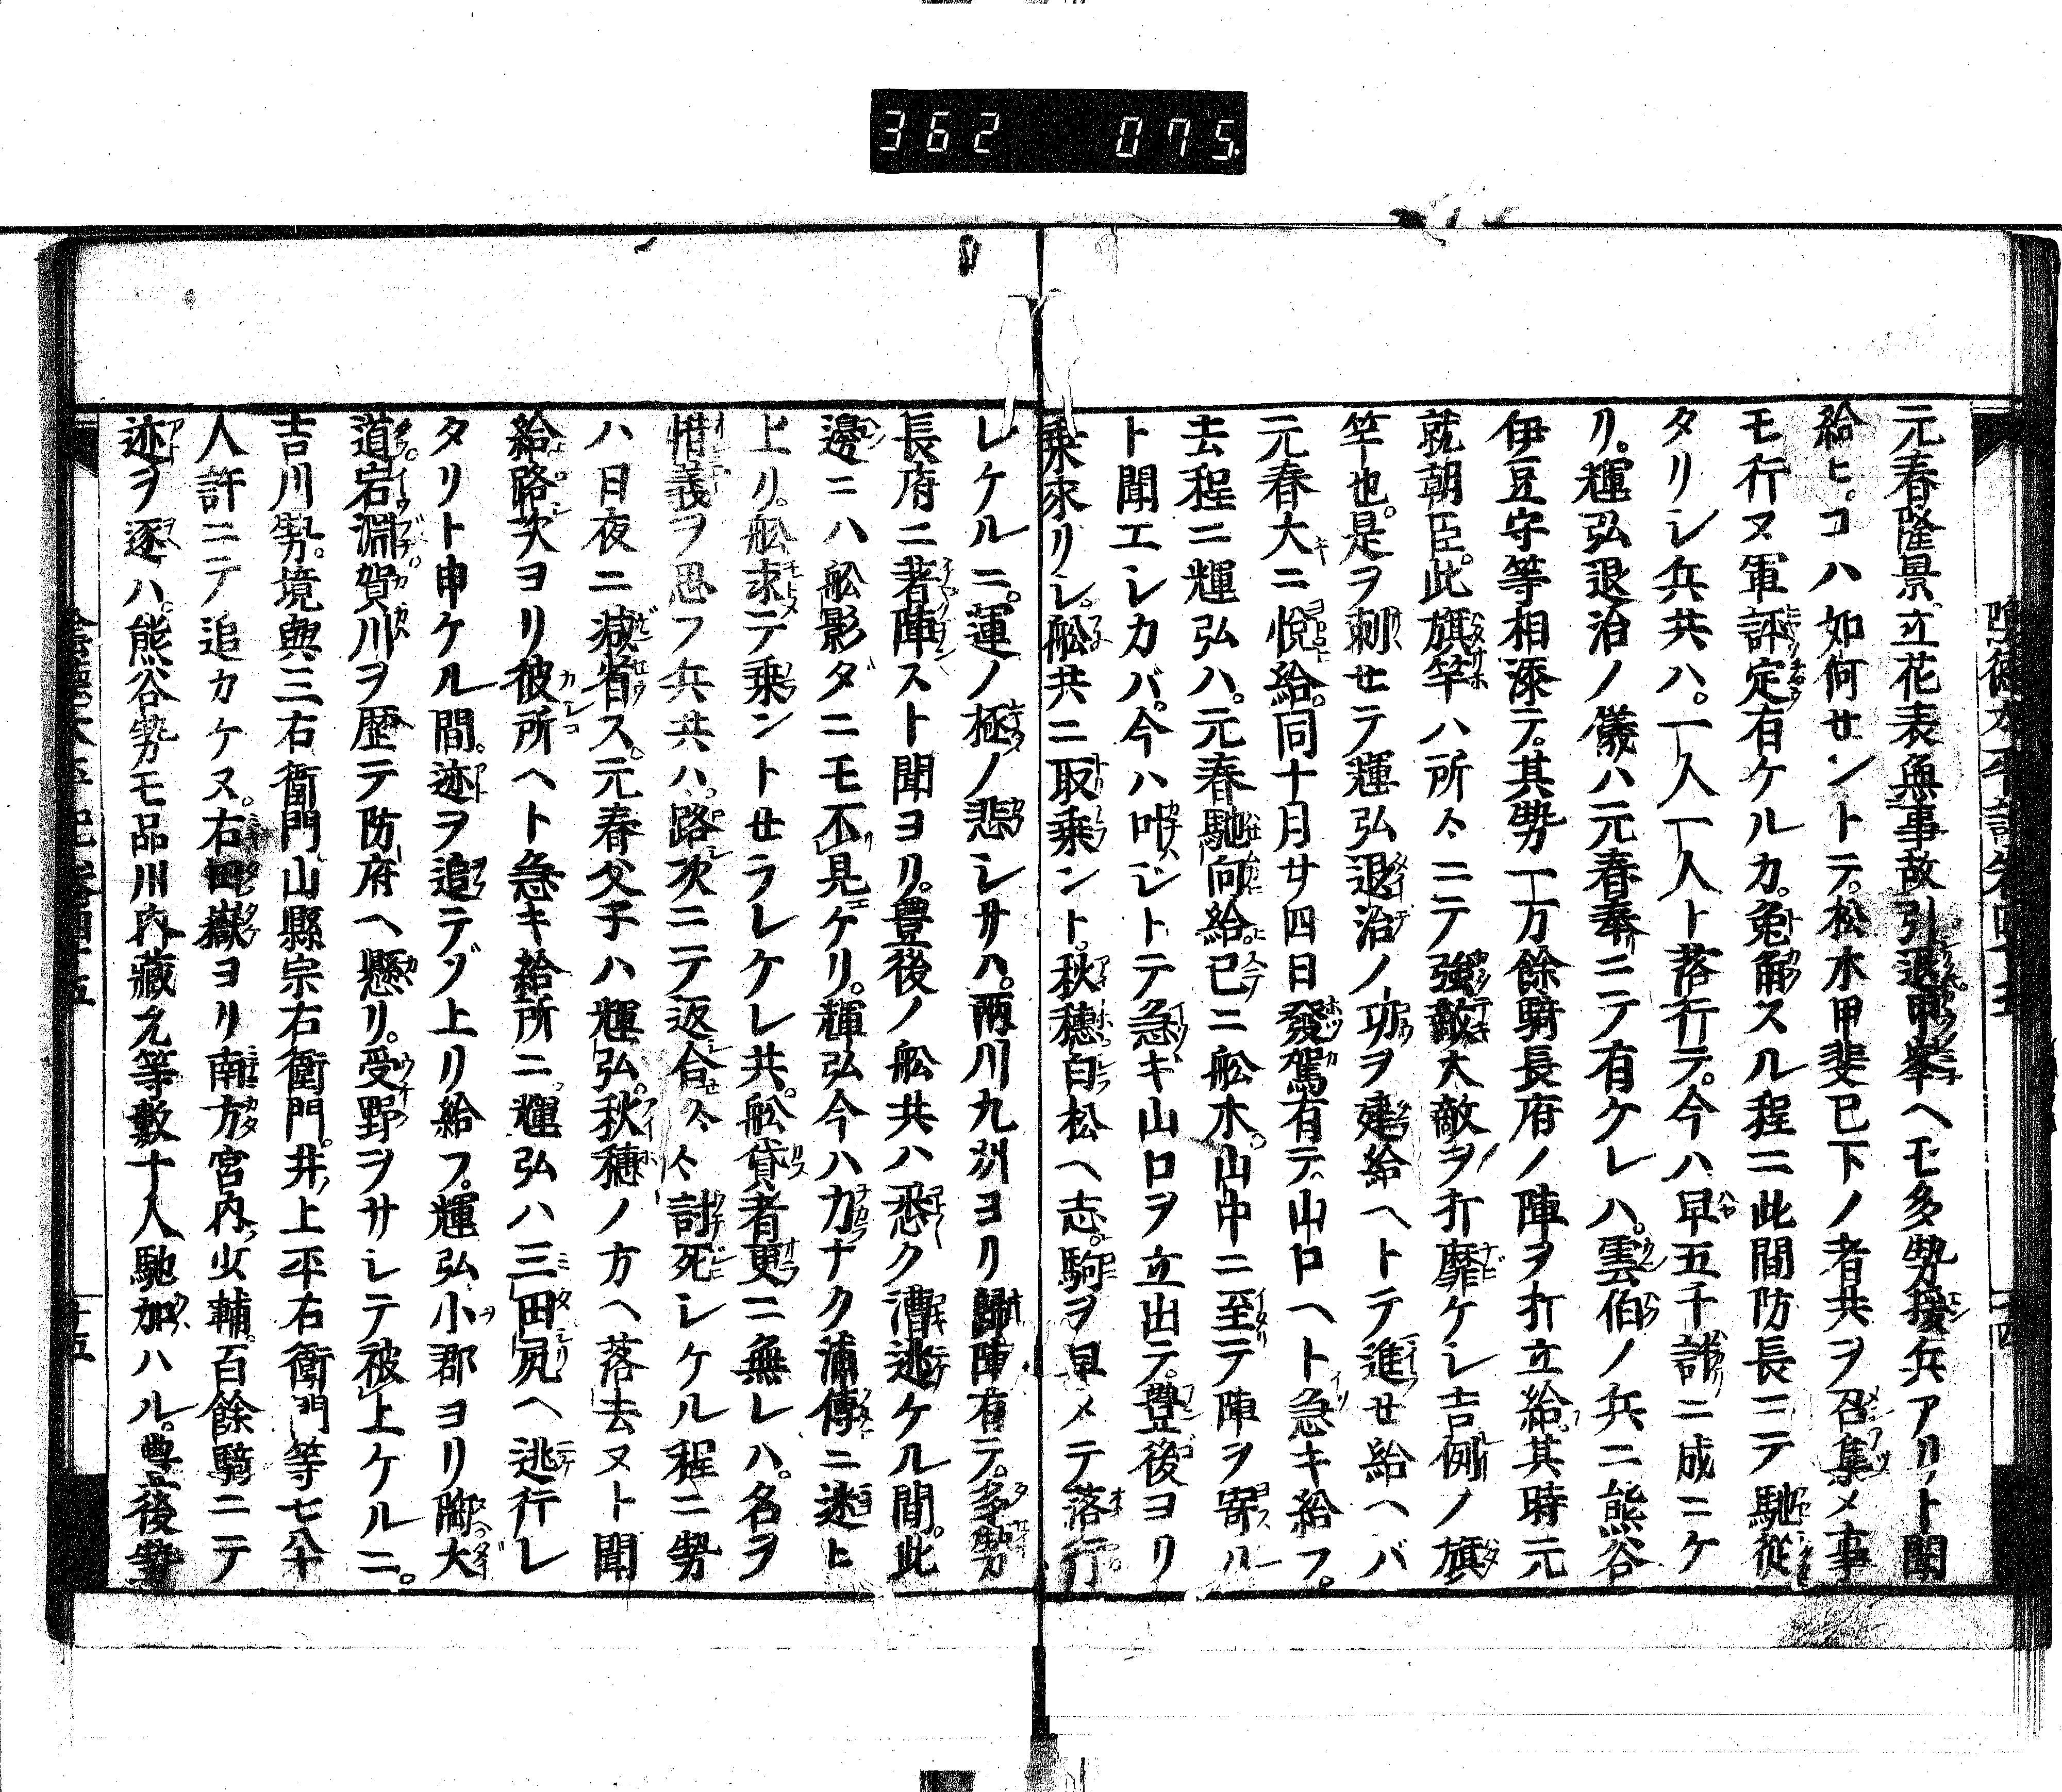 362 075
元春隆景立花表無事故引退甲峯ヘモ多勢援兵アリト聞
給ヒ。コハ如何セントテ。松木甲斐已下ノ者共ヲ召集メ事
モ行ヌ軍評定有ケルカ。兔角スル程ニ此間防長ニテ馳従
タリシ兵共ハ。一人一人ト落行テ。今ハ早五千許ニ成ニケ
リ。輝弘退治ノ儀ハ元春奉ニテ有ケレハ。雲伯ノ兵ニ熊谷
伊豆守等相添テ。其勢一万餘騎長府ノ陣ヲ打立給。其時元
就朝臣。此旗竿ハ所々ニテ強敵大敵ヲ打靡ケシ吉例ノ旗
竿也。是ヲ刺セテ輝弘退治ノ功ヲ建給ヘトテ進セ給ヘバ
元春大ニ悦給。同十月廿四日發駕有テ山口ヘト急キ給フ。
去程ニ輝弘ハ。元春馳向給已ニ舩木。山中ニ至テ陣ヲ寄ル
ト聞エシカバ。今ハ叶ジトテ急ギ山口ヲ立出テ。豊後ヨリ
乗來リシ。舩共ニ取乗ント。秋穂白松ヘ志。駒ヲ早メテ落行
レケルニ。運ノ極ノ悲シサハ。兩川九州ヨリ歸陣有テ。多勢
長府ニ著陣スト聞ヨリ。豊後ノ舩共ハ悉ク漕逃ケル間。此
邊ニハ舩影ダニモ不見ケリ。輝弘今ハ力ナク浦傳ニ迷ヒ
上リ。舩求テ乗ントセラレケレ共。舩貸者更ニ無レハ。名ヲ
惜義ヲ思フ兵共ハ。路次ニテ返合々々討死シケル程ニ勢
ハ日夜ニ減省ス。元春父子ハ輝弘。秋穂ノ方ヘ落去ヌト聞
給路次ヨリ彼所ヘト急キ給所ニ。輝弘ハ三田尻ヘ逃行レ
タリト申ケル間。迹ヲ追テゾ上リ給フ。輝弘小郡ヨリ陶大
道岩淵賀川ヲ歴テ防府ヘ懸リ。受野ヲサシテ被上ケルニ。
吉川勢。境與三右衛門山縣宗右衛門。井上平右衛門等七八十
人許ニテ追カケヌ。右田嶽ヨリ南方宮内少輔。百餘騎ニテ
迹ヲ逐ハ。熊谷勢モ品川内藏允等數十人馳加ハル。豊後勢